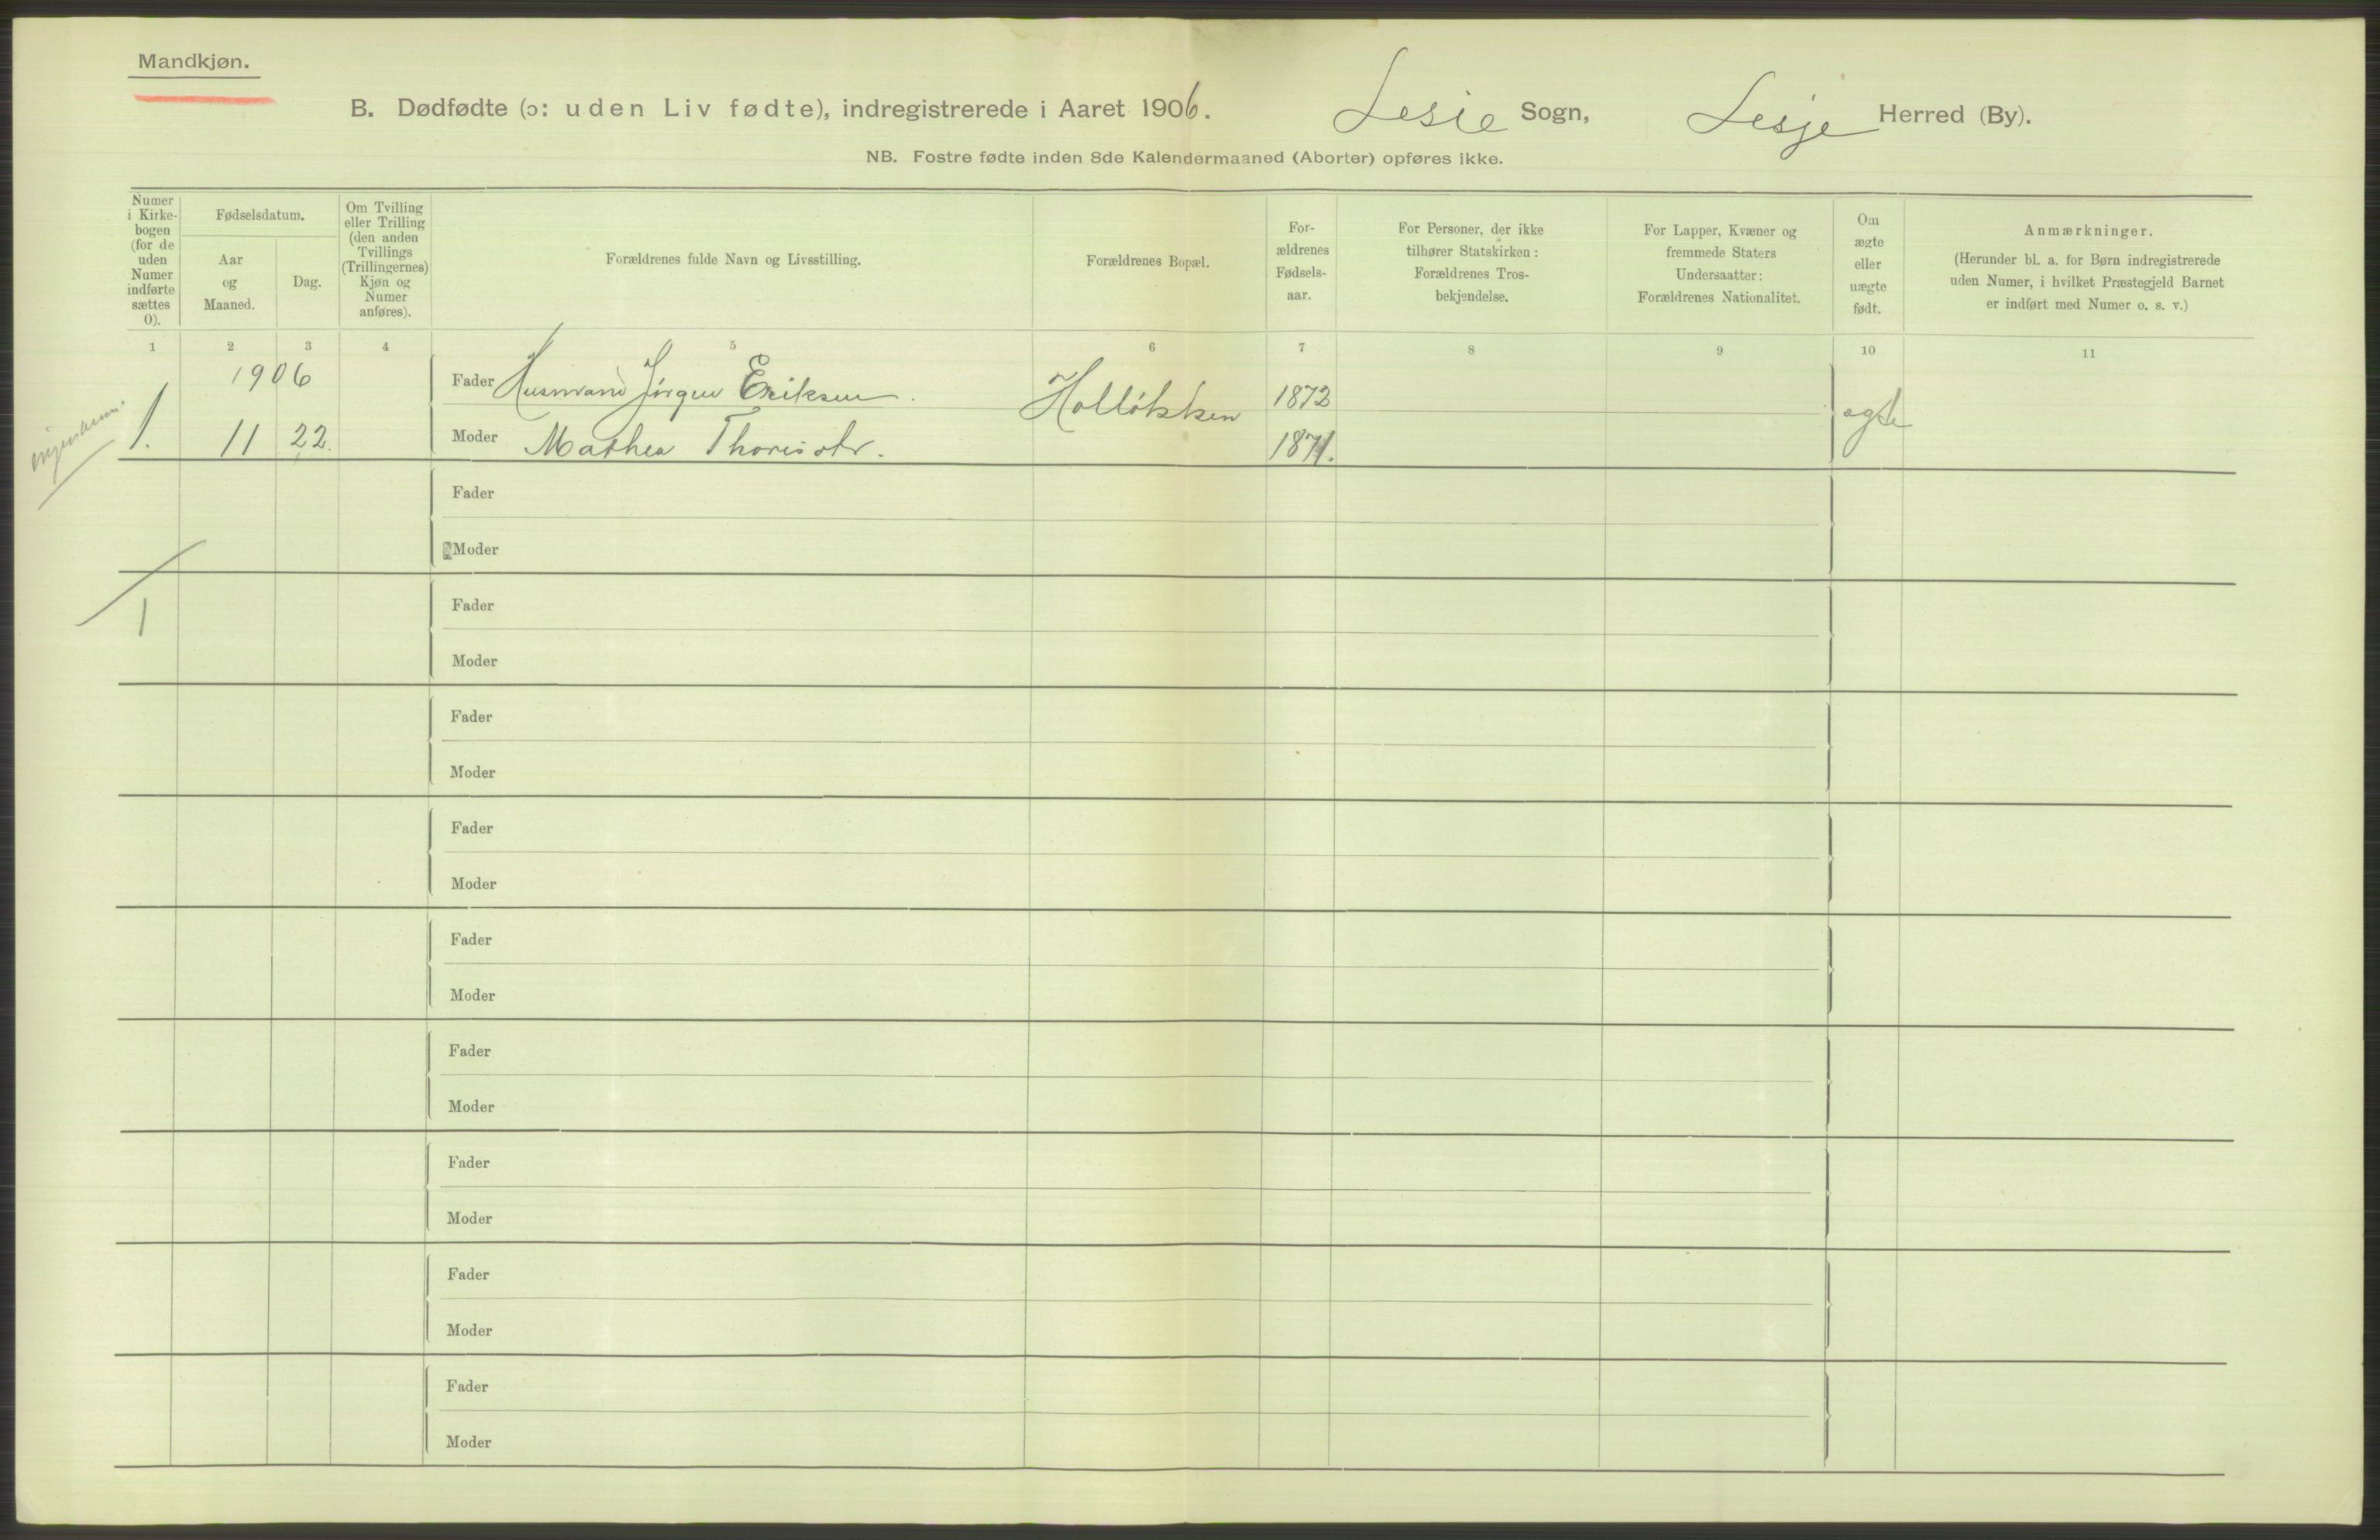 Mandkjøn.
B. Dødfødte (ɔ: uden Liv fødte), indregistrerede i Aaret 1906. Lesje Sogn, Lesje Herred (By).
NB. Fostre fødte inden 8de Kalendermaaned (Aborter) opføres ikke.
Numer
i Kirke-
bogen
(for de
uden
Numer
indførte
sættes
0).
Fødselsdatum.
Aar
og
Maaned.
Dag.
Om Tvilling
eller Trilling
(den anden
Tvillings
(Trillingernes)
Kjøn og
Numer
anføres).
Forældrenes fulde Navn og Livsstilling.
Forældrenes Bopæl.
For-
ældrenes
Fødsels-
aar.
For Personer, der ikke
tilhører Statskirken:
Forældrenes Tros-
bekjendelse.
For Lapper, Kvæner og
fremmede Staters
Undersaatter:
Forældrenes Nationalitet.
Om
ægte
eller
uægte
født.
Anmærkninger.
(Herunder bl. a. for Børn indregistrerede
uden Numer, i hvilket Præstegjeld Barnet
er indført med Numer o. s. v.)
1 2 3 4 5 6 7 8 9 10 11
1906
Fader Husmand Jörgen Eriksen. 1872
1. 11 22. Moder Mathea Thorisdtr. 1871. ægte
Fader
Moder
1
Fader
Moder
Fader
Moder
Fader
Moder
Fader
Moder
Fader
Moder
Fader
Moder
Fader
Moder
Fader
Moder